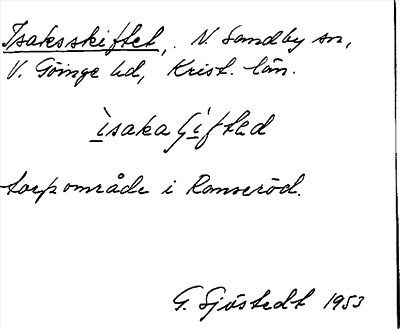 Isaksskiftet, N. Sandby sn,
V. Göinge hd, Krist. län.
ìsakaʃìfted
torpområde i Ranseröd.
G. Sjöstedt 1953